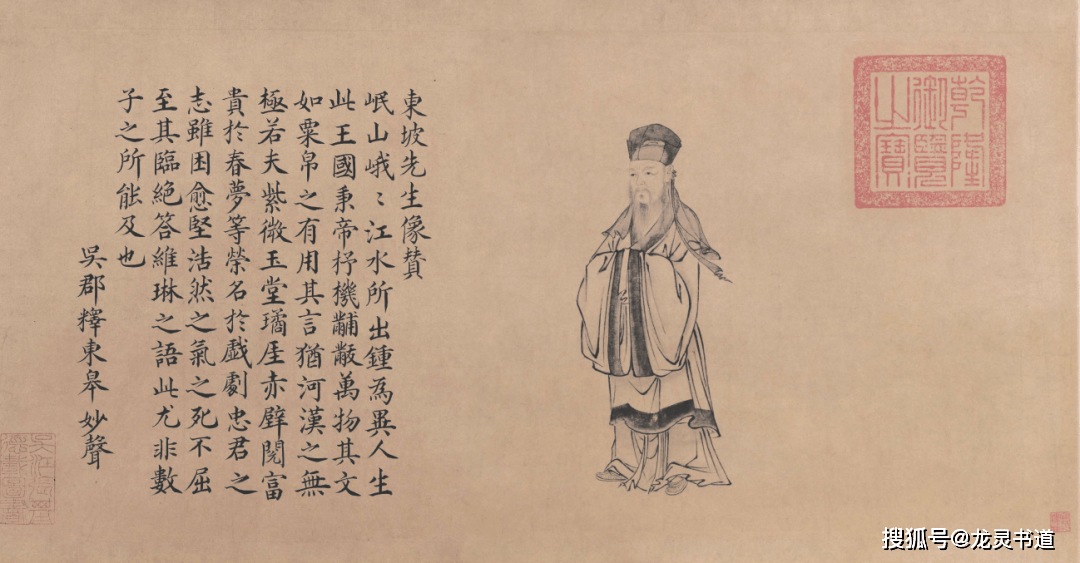 乾隆
御覽
之寶
東坡先生像賛
岷山峨〻江水所出鍾爲異人生
此王國秉帝杼機黼黻萬物其文
如粟帛之有用其言猶河漢之無
極若夫紫微玉堂璚厓赤壁閱富
貴於春夢等榮名於戲劇忠君之
志雖困愈堅浩然之氣之死不屈
至其臨絶答維琳之語此尤非數
子之所能及也
吳郡釋東皋妙聲
搜狐号@龙灵书道